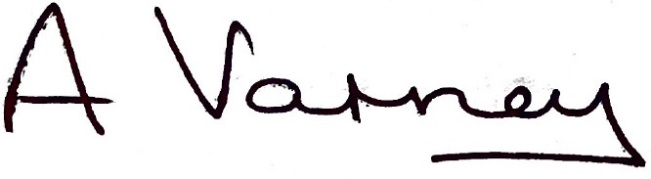 A Varney